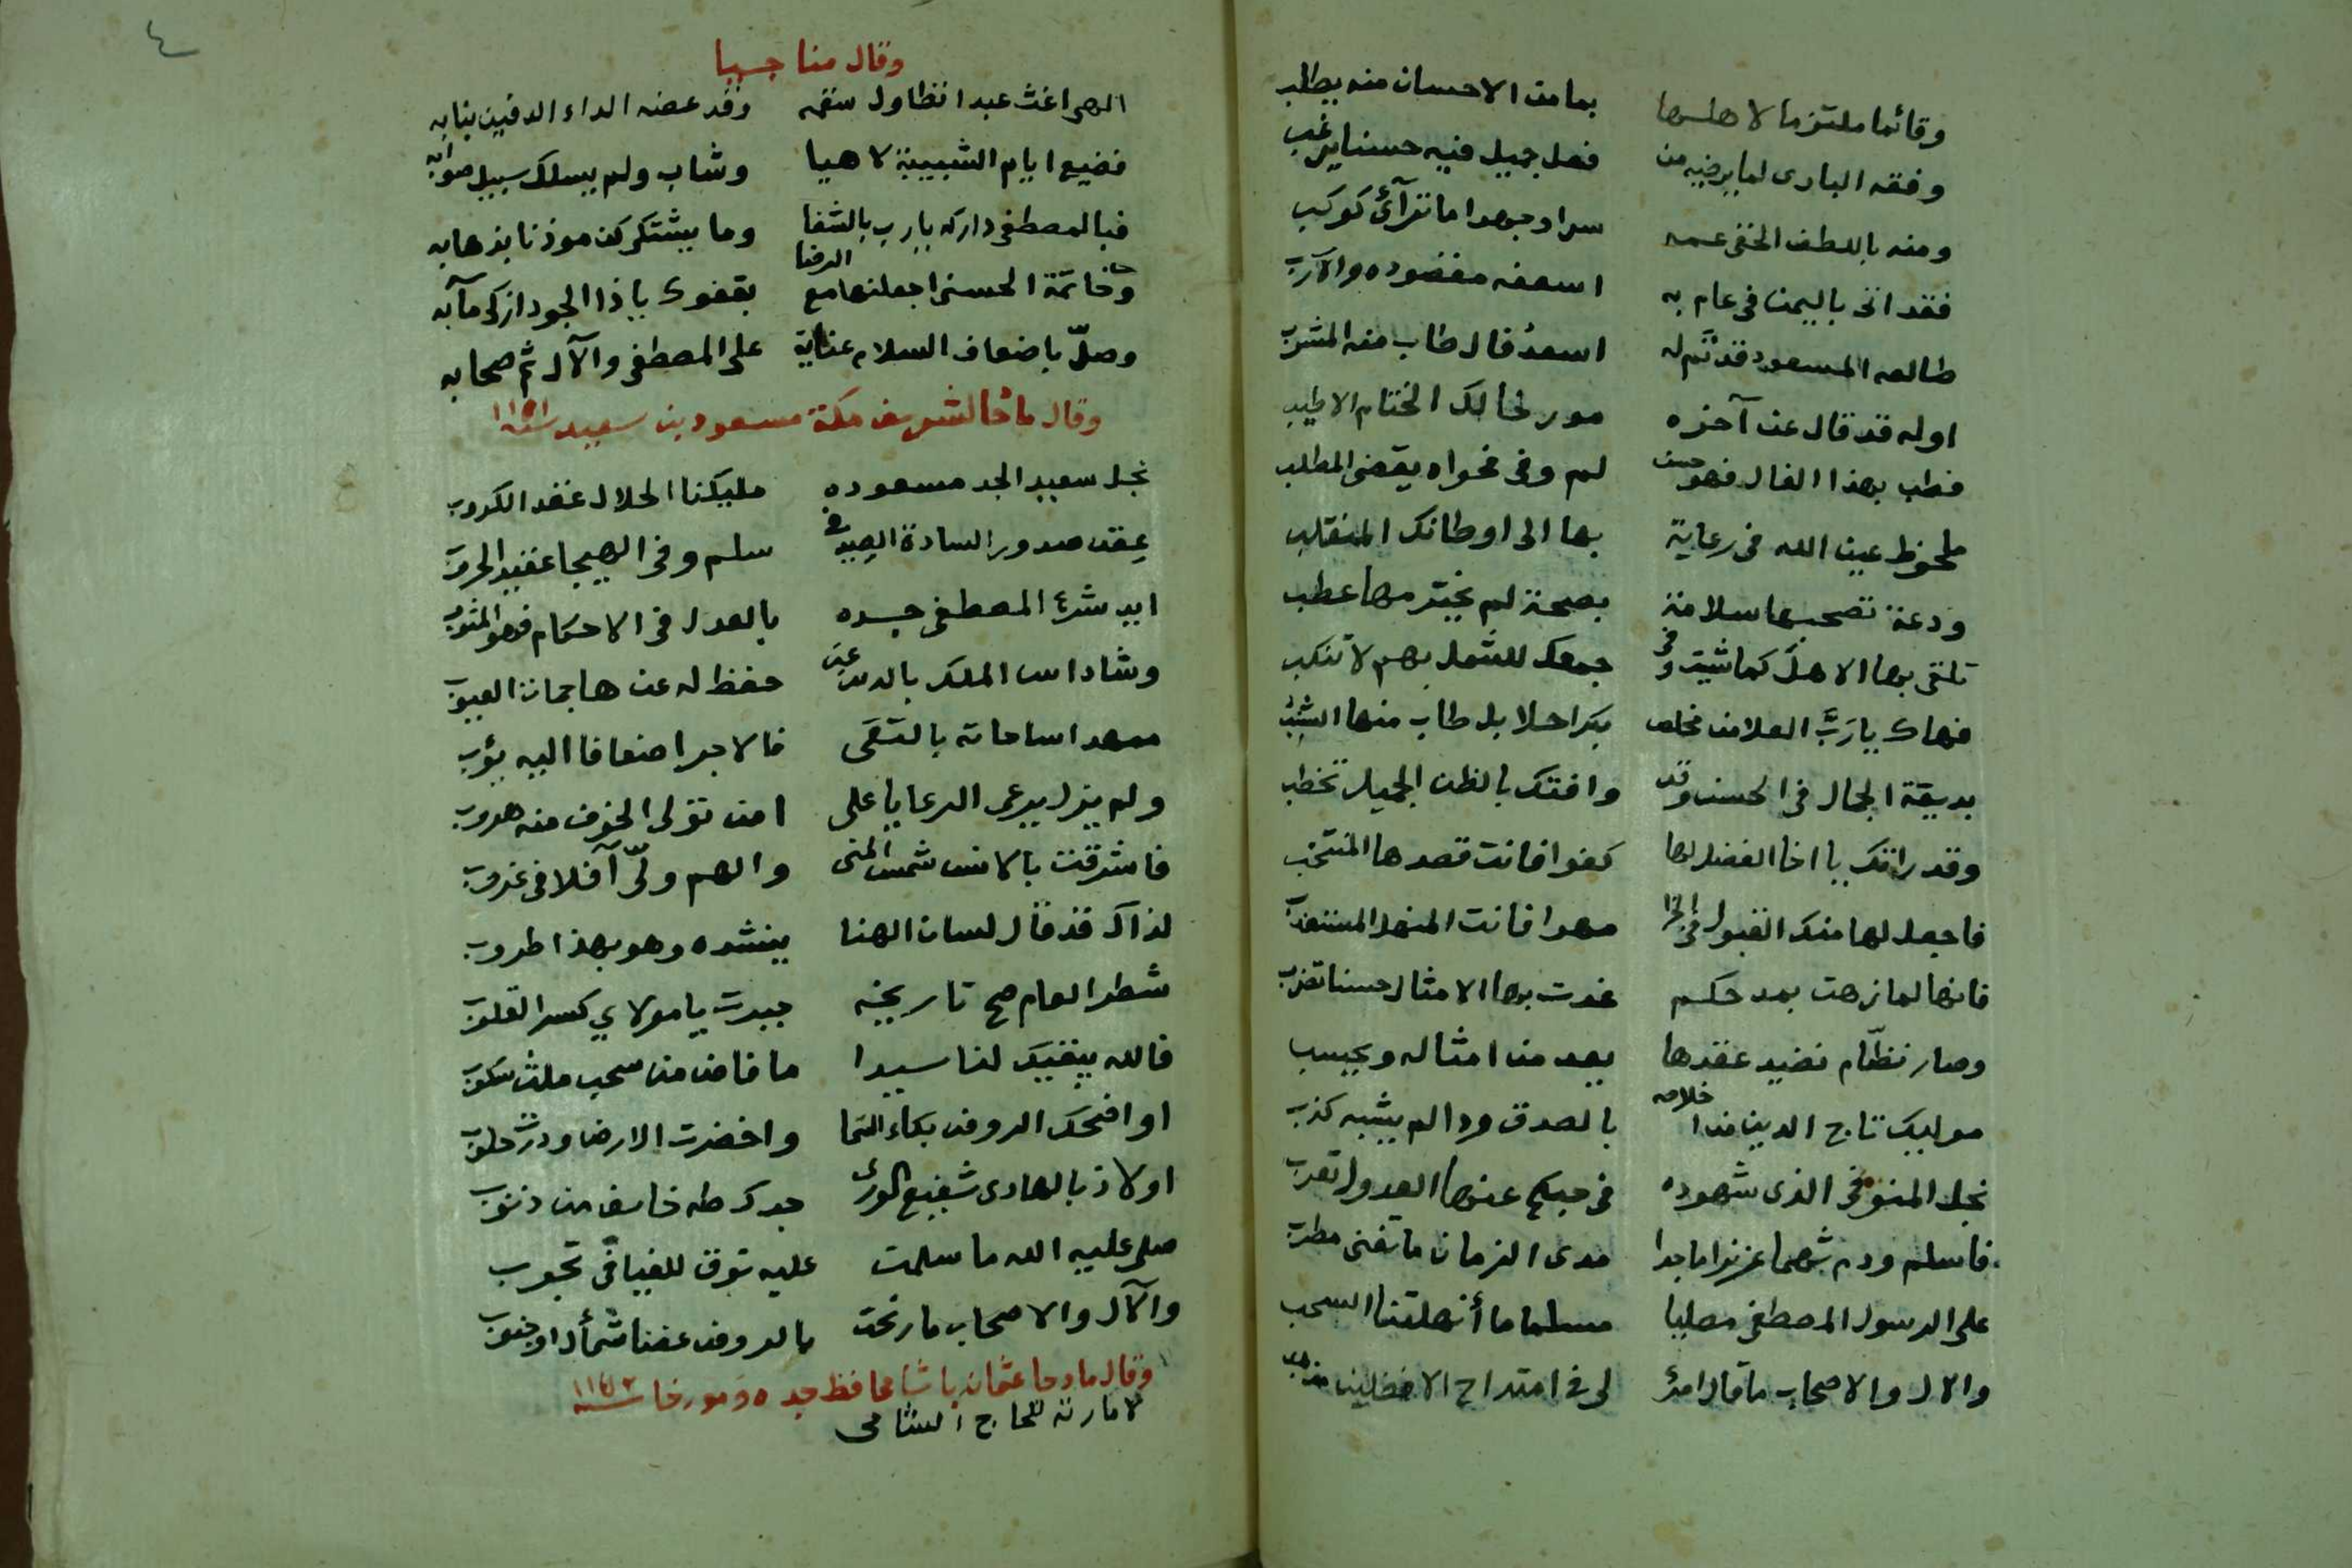 وقائما ملتزما لاهلها بما من الاحسان منه يطلب
وفقه البارى لما يرضيه من فعل جميل فيه حسنا يرغب
ومنه باللطف الخفى عمه سرا وجهدا ما تراآئ كوكب
فقد اتى باليمن فى عام به اسعفه مقصوده والارب
طالعه المسعود قد تم له اسعدُ فال طاب منه المشرب
اوله قد قال عن آخره مور لحا لك الختام الاطيب
فطب بهذا الفال فهو حسن لم وفى فحواه يقضى المطلب
ملحوظ عين الله فى رعاية بها الى اوطانك المنقلب
ودعة تصحبها سلامة بصحة لم يخترمها عطب
تلقى بها الاهل كما شيت وفى جمعك للشمل بهم لا تنكب
فهاك يا ربّ العلا من مخلص بكرا حلا بل طاب منها الشنب
بديعة الجمال فى الحسن وقد وافتك بالظن الجميل تخطب
وقد راتك يا اخا الفضل لها كفوا فانت قصدها المنتخب
فاجعل لها منك القبول فى الجزا مهرا فانت المنهل المستعذب
فانها لما زهت بمدحكم غدت بها الامثال حسنا تضرب
وصار نظّام نضيد عقدها يعد من امثاله ويحسب
مولييك تاج الدين من اخلاصه بالصدق ودا لم يشبه كذب
نجل المنوفى الذى شهوده فى حبكم عنها العدول تعرب
فاسلم ودم شهما عزيزا ماجدا مدى الزمان ما تغنى مطرب
على الرسول المصطفى مصليا مسلما ما أنهلتنا السحب
والال والاصحاب ما قال امرئ لى فى امتداح الافضلين مذهب
٤
وقال مناجيا
الهى اغث عبدا تطاول سقمه وقد عضه الداء الدفين بنابه
فضيع ايام الشبيبة لاهيا وشاب ولم يسلك سبيل صوابه
فبالمصطفى داركه يا رب بالشفا وما يشتكى كن موذنا بذهابه
وخاتمة الحسنى اجعلنها مع الرضا بقفوك يا ذا الجود ازكى مآبه
وصلّ باضعاف السلام عناية على المصطفى والآل ثم صحابه
وقال مادحا لشريف مكة مسعود بن سعيد سنة ١١٥١
نجل سعيد الجد مسعوده مليكنا الحلال عقد الكروب
عِقد صدور السادة الصيد فى سلم وفى الهيجا عقيد الحروب
ايد شرع المصطفى جده بالعدل فى الاحكام فهو المثوب
وشاد اس الملك بالدين عن حفظ له عن هاجمات العيوب
ممهدا ساحاته بالتقى فالاجر اضعافا اليه يؤب
ولم يزل يرعى الرعايا على امن تولى الخوف منه هروب
فاشرقت بالانس شمس المنى والهم ولّى آفلا فى غروب
لذاك قد قال لسان الهنا ينشده وهو بهذا طروب
شطر العام صح تاريخه جبرت يا مولاي كسر القلوب
فالله يبقيك لنا سيدا ما فاض من سحب ملث سكوب
او اضحك الروض بكاء السما واخضرت الارض ودرت حلوب
او لاذ بالهادى شفيع الورى جدك طه خائف من ذنوب
صلى عليه الله ما سلمت عليه نوق للفيافى تجوب
والآل والاصحاب ما رنحت بالروض غضنا شمأل او جنوب
وقال مادحا عثمان باشا محافظ جده ومورخا سنة ١١٥٢
لامارته للحاج الشامى